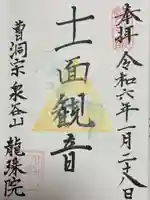 奉拝 令和六年一月二十八日
十一面観音
曹洞宗 泉谷山 龍珠院